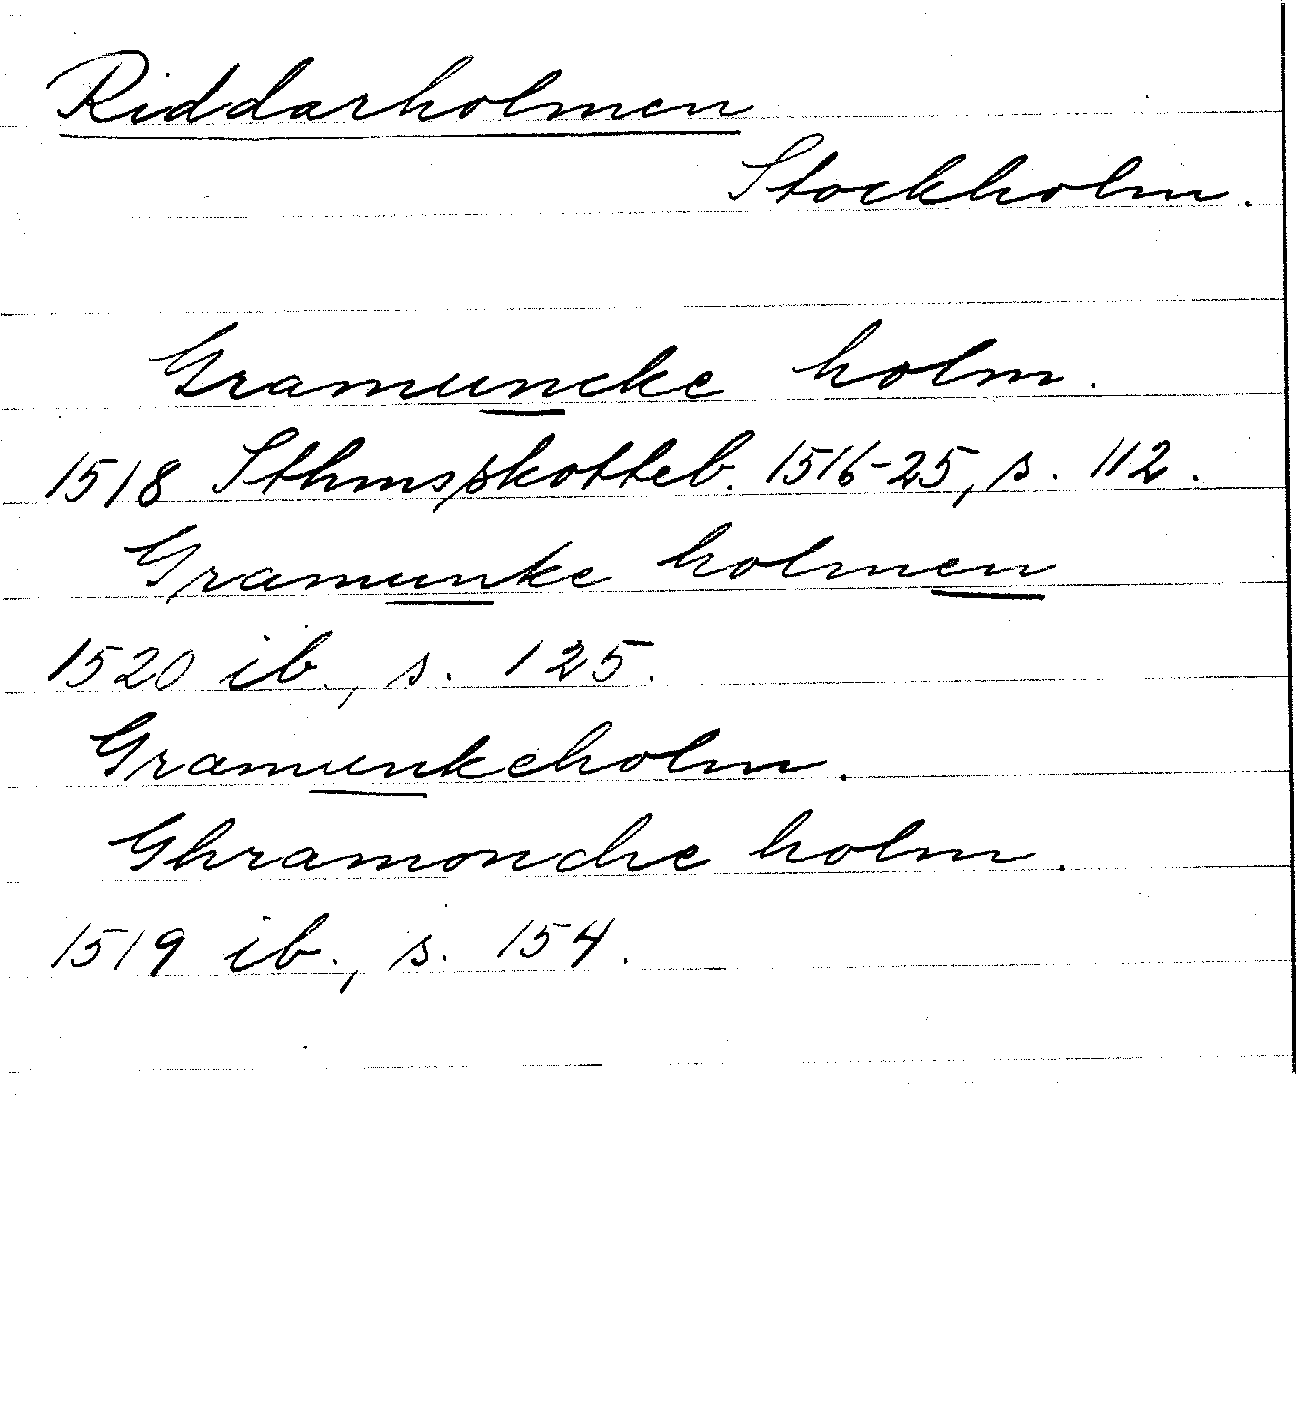 Riddarholmen
Stockholm.
Gramuncke holm.
1518 Sthmsskotteb. 1516-25, s. 112.
Gramunke holmen
1520 ib., s. 125.
Gramunkeholm.
Ghramonche holm.
1519 ib., s. 154.